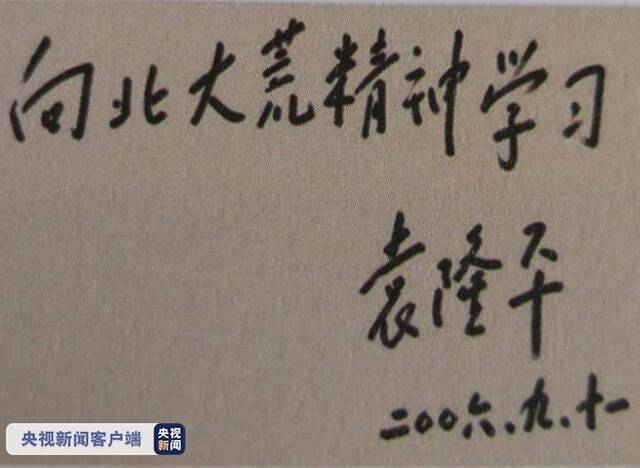 向北大荒精神学习
袁隆平
二〇〇六、九、十一
央视新闻客户端
央视
新闻